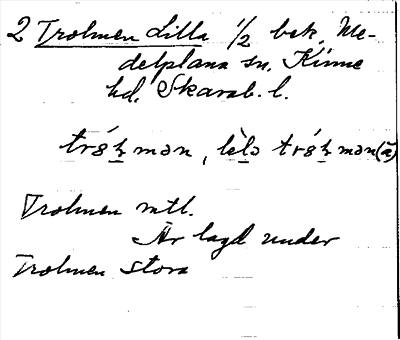 2 Trolmen Lilla 1/2 bek, Me-
delplana sn, Kinne
hd, Skarab. l.
Trolmen mtl.
Är lagd under
Trolmen stora